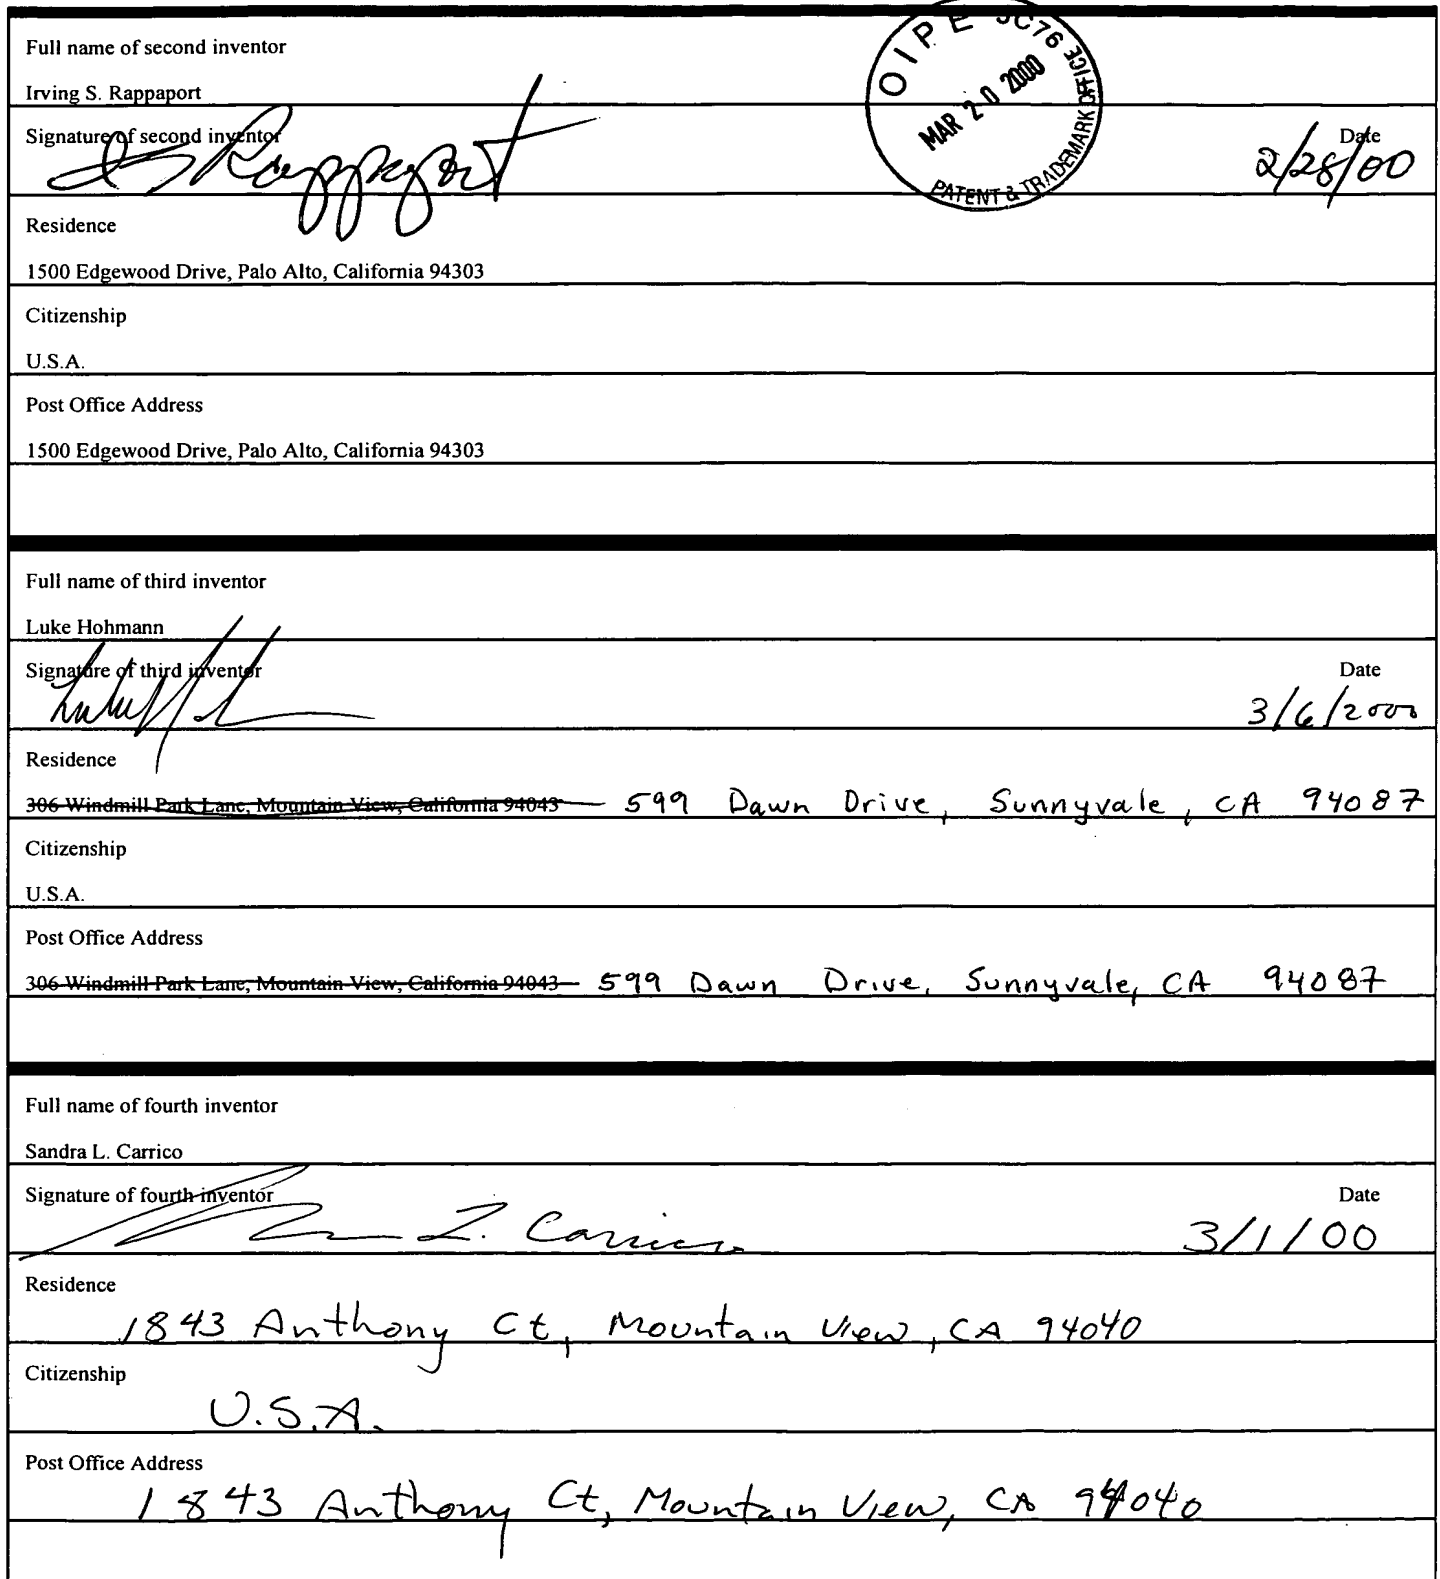 OIPE JC76
MAR 20 2000
PATENT & TRADEMARK OFFICE
Full name of second inventor
Irving S. Rappaport
Signature of second inventor
Date
IS Rappaport
2/28/00
Residence
1500 Edgewood Drive, Palo Alto, California 94303
Citizenship
U.S.A.
Post Office Address
1500 Edgewood Drive, Palo Alto, California 94303
Full name of third inventor
Luke Hohmann
Signature of third inventor
Date
3/6/2000
Residence
306 Windmill Park Lane, Mountain View, California 94043 599 Dawn Drive, Sunnyvale, CA 94087
Citizenship
U.S.A.
Post Office Address
306 Windmill Park Lane, Mountain View, California 94043 599 Dawn Drive, Sunnyvale, CA 94087
Full name of fourth inventor
Sandra L. Carrico
Signature of fourth inventor
Date
L. Carrico
3/1/00
Residence
1843 Anthony Ct, Mountain View, CA 94040
Citizenship
U.S.A.
Post Office Address
1843 Anthony Ct, Mountain View, CA 94040